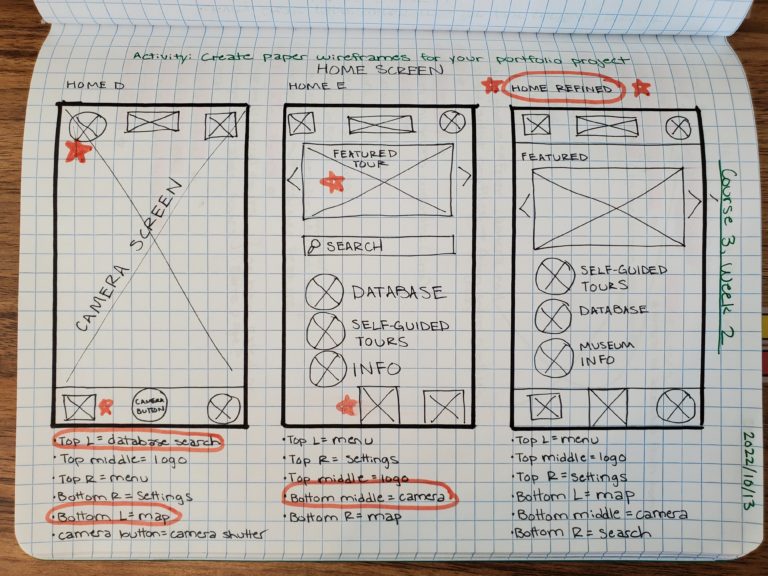 Activity: Create paper wireframes for your portfolio project
HOME SCREEN
HOME D
CAMERA SCREEN
CAMERA
BUTTON
• Top L = database search
• Top middle = logo
• Top R = menu
• Bottom R = settings
• Bottom L = map
• camera button = camera shutter
HOME E
FEATURED
TOUR
SEARCH
DATABASE
SELF-GUIDED
TOURS
INFO
• Top L = menu
• Top R = settings
• Top middle = logo
• Bottom middle = camera
• Bottom R = map
HOME REFINED
FEATURED
SELF-GUIDED
TOURS
DATABASE
MUSEUM
INFO
• Top L = menu
• Top middle = logo
• Top R = settings
• Bottom L = map
• Bottom middle = camera
• Bottom R = search
Course 3, Week 2
2022/10/13